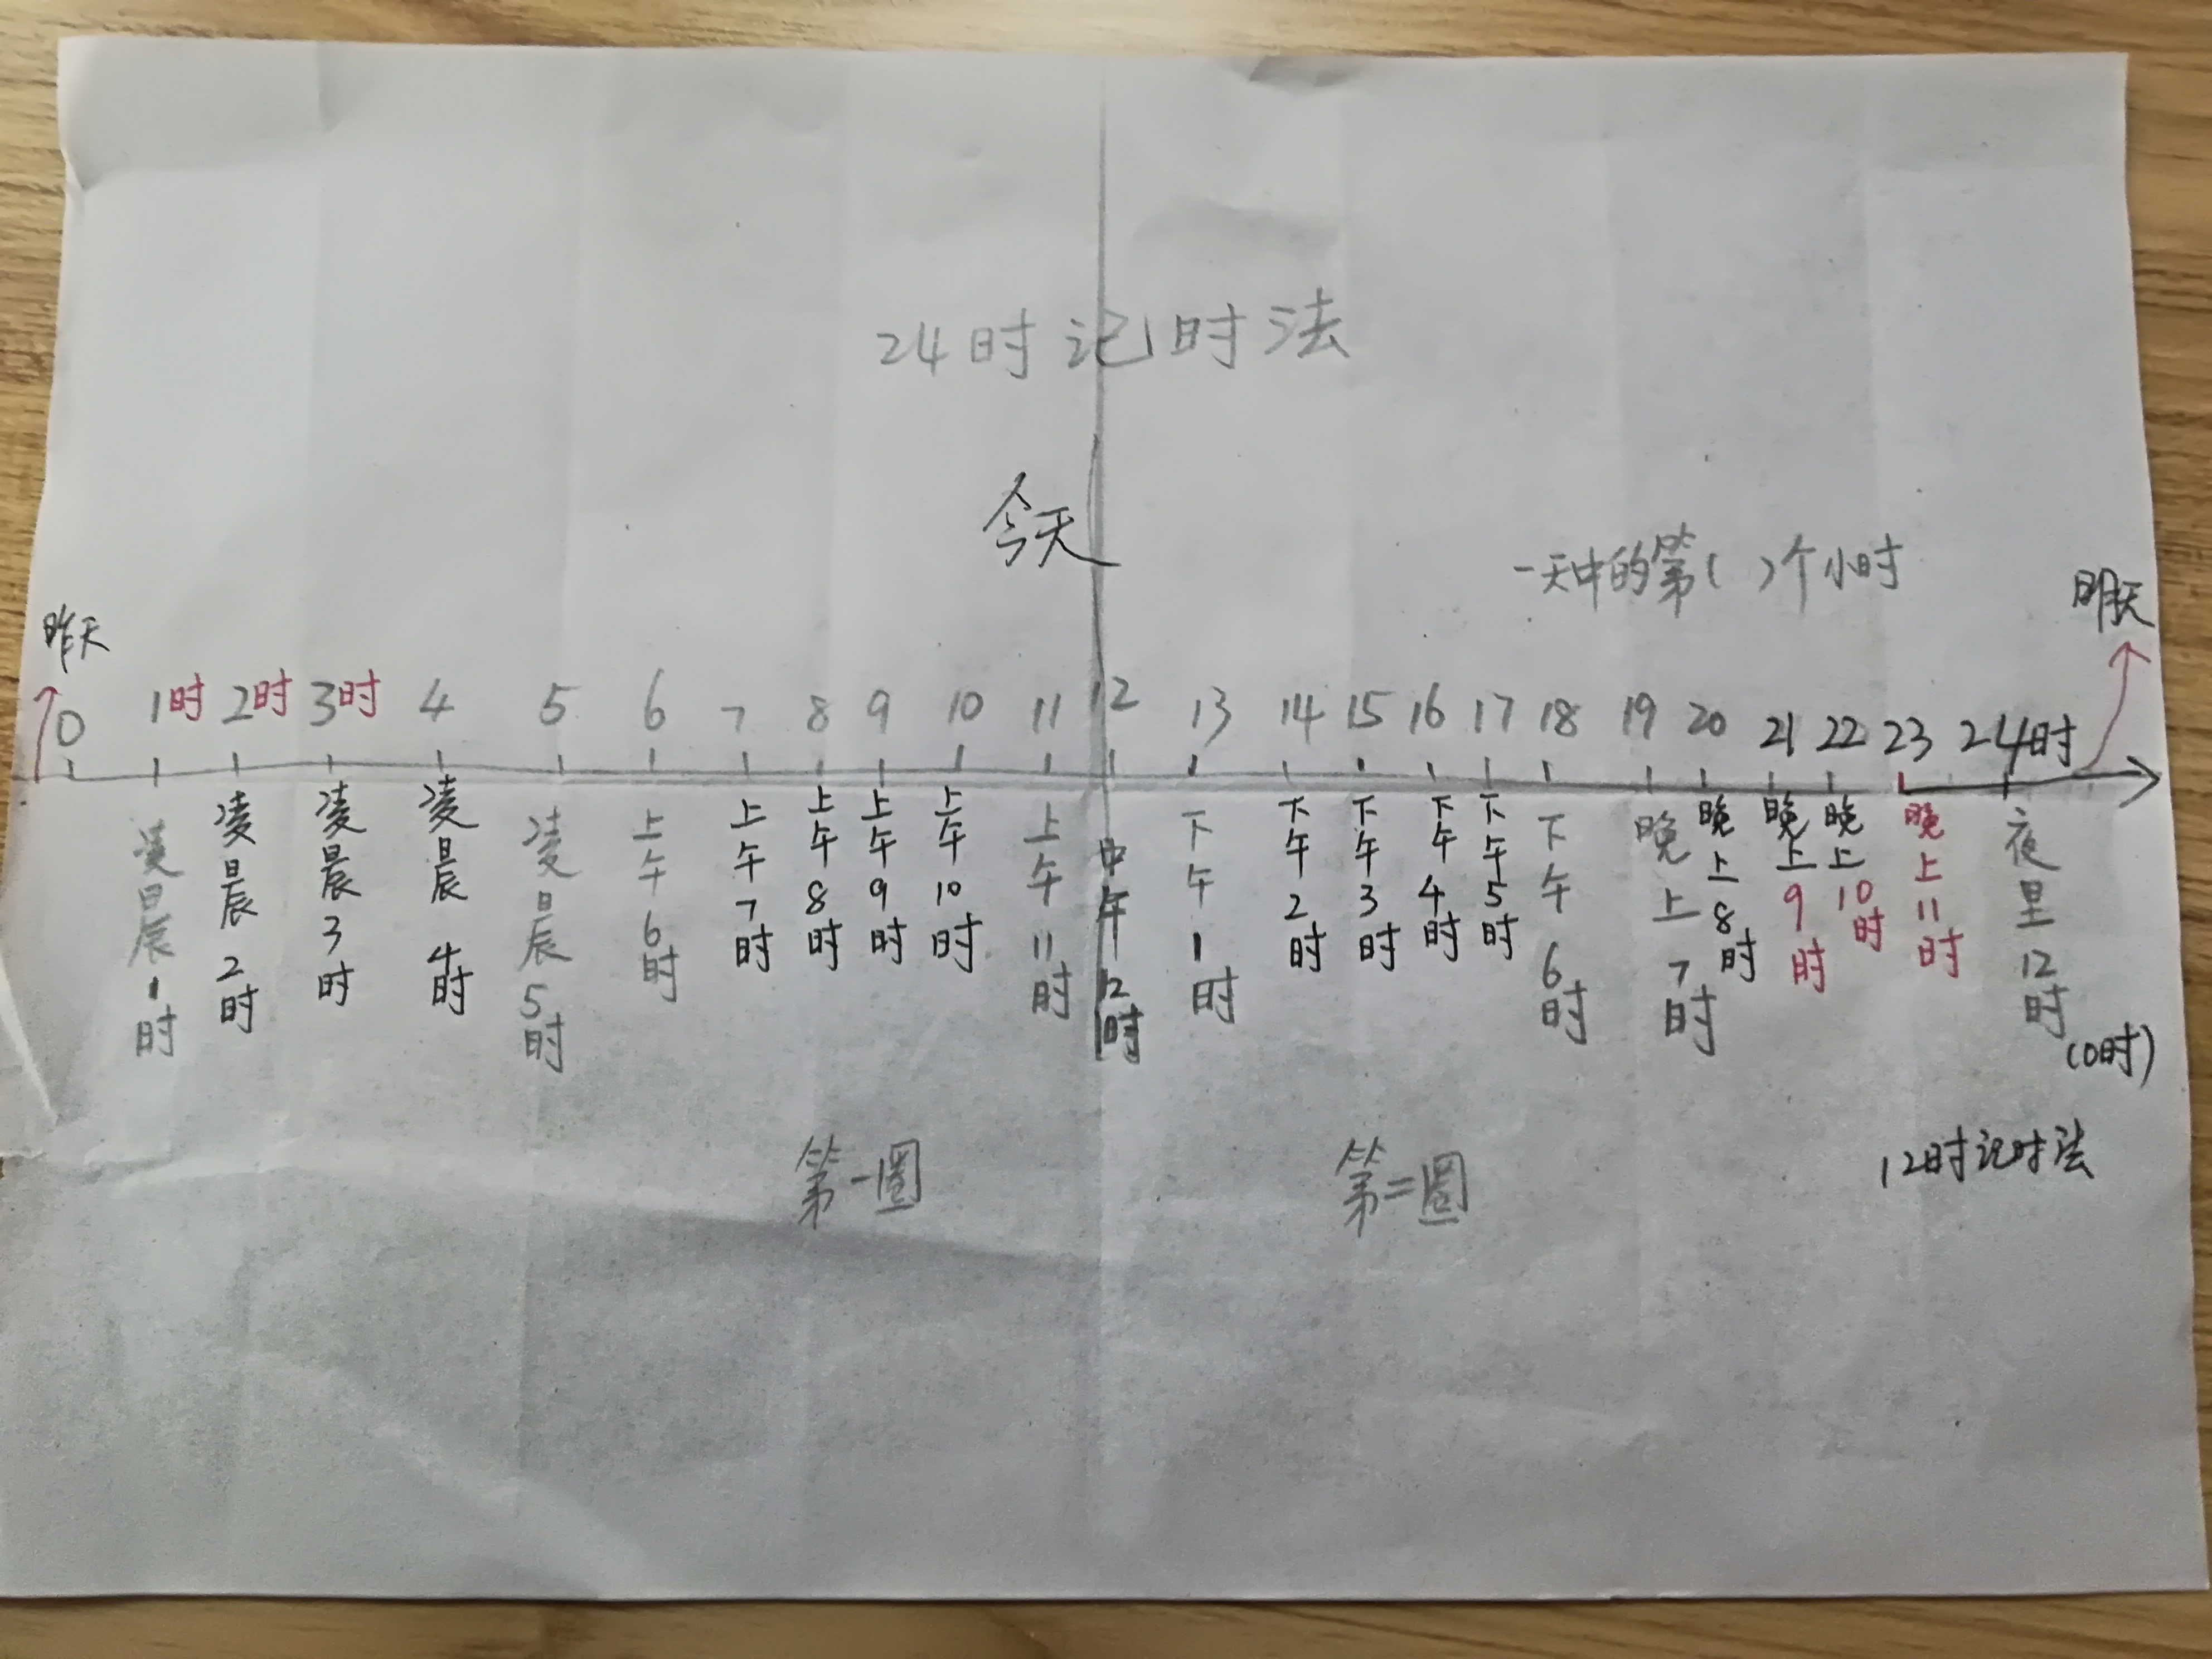 24时记时法
今天
一天中的第( )个小时
昨天
明天
0 1时 2时 3时 4 5 6 7 8 9 10 11 12 13 14 15 16 17 18 19 20 21 22 23 24时
凌晨1时
凌晨2时
凌晨3时
凌晨4时
凌晨5时
上午6时
上午7时
上午8时
上午9时
上午10时
上午11时
中午12时
下午1时
下午2时
下午3时
下午4时
下午5时
下午6时
晚上7时
晚上8时
晚上9时
晚上10时
晚上11时
夜里12时
(0时)
12时记时法
第一圈
第二圈